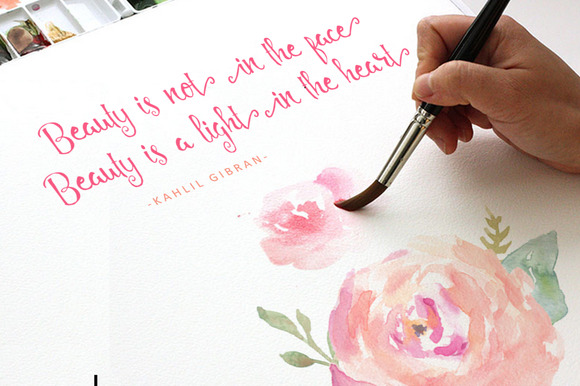 Beauty is not in the face
Beauty is a light in the heart
-KAHLIL GIBRAN-